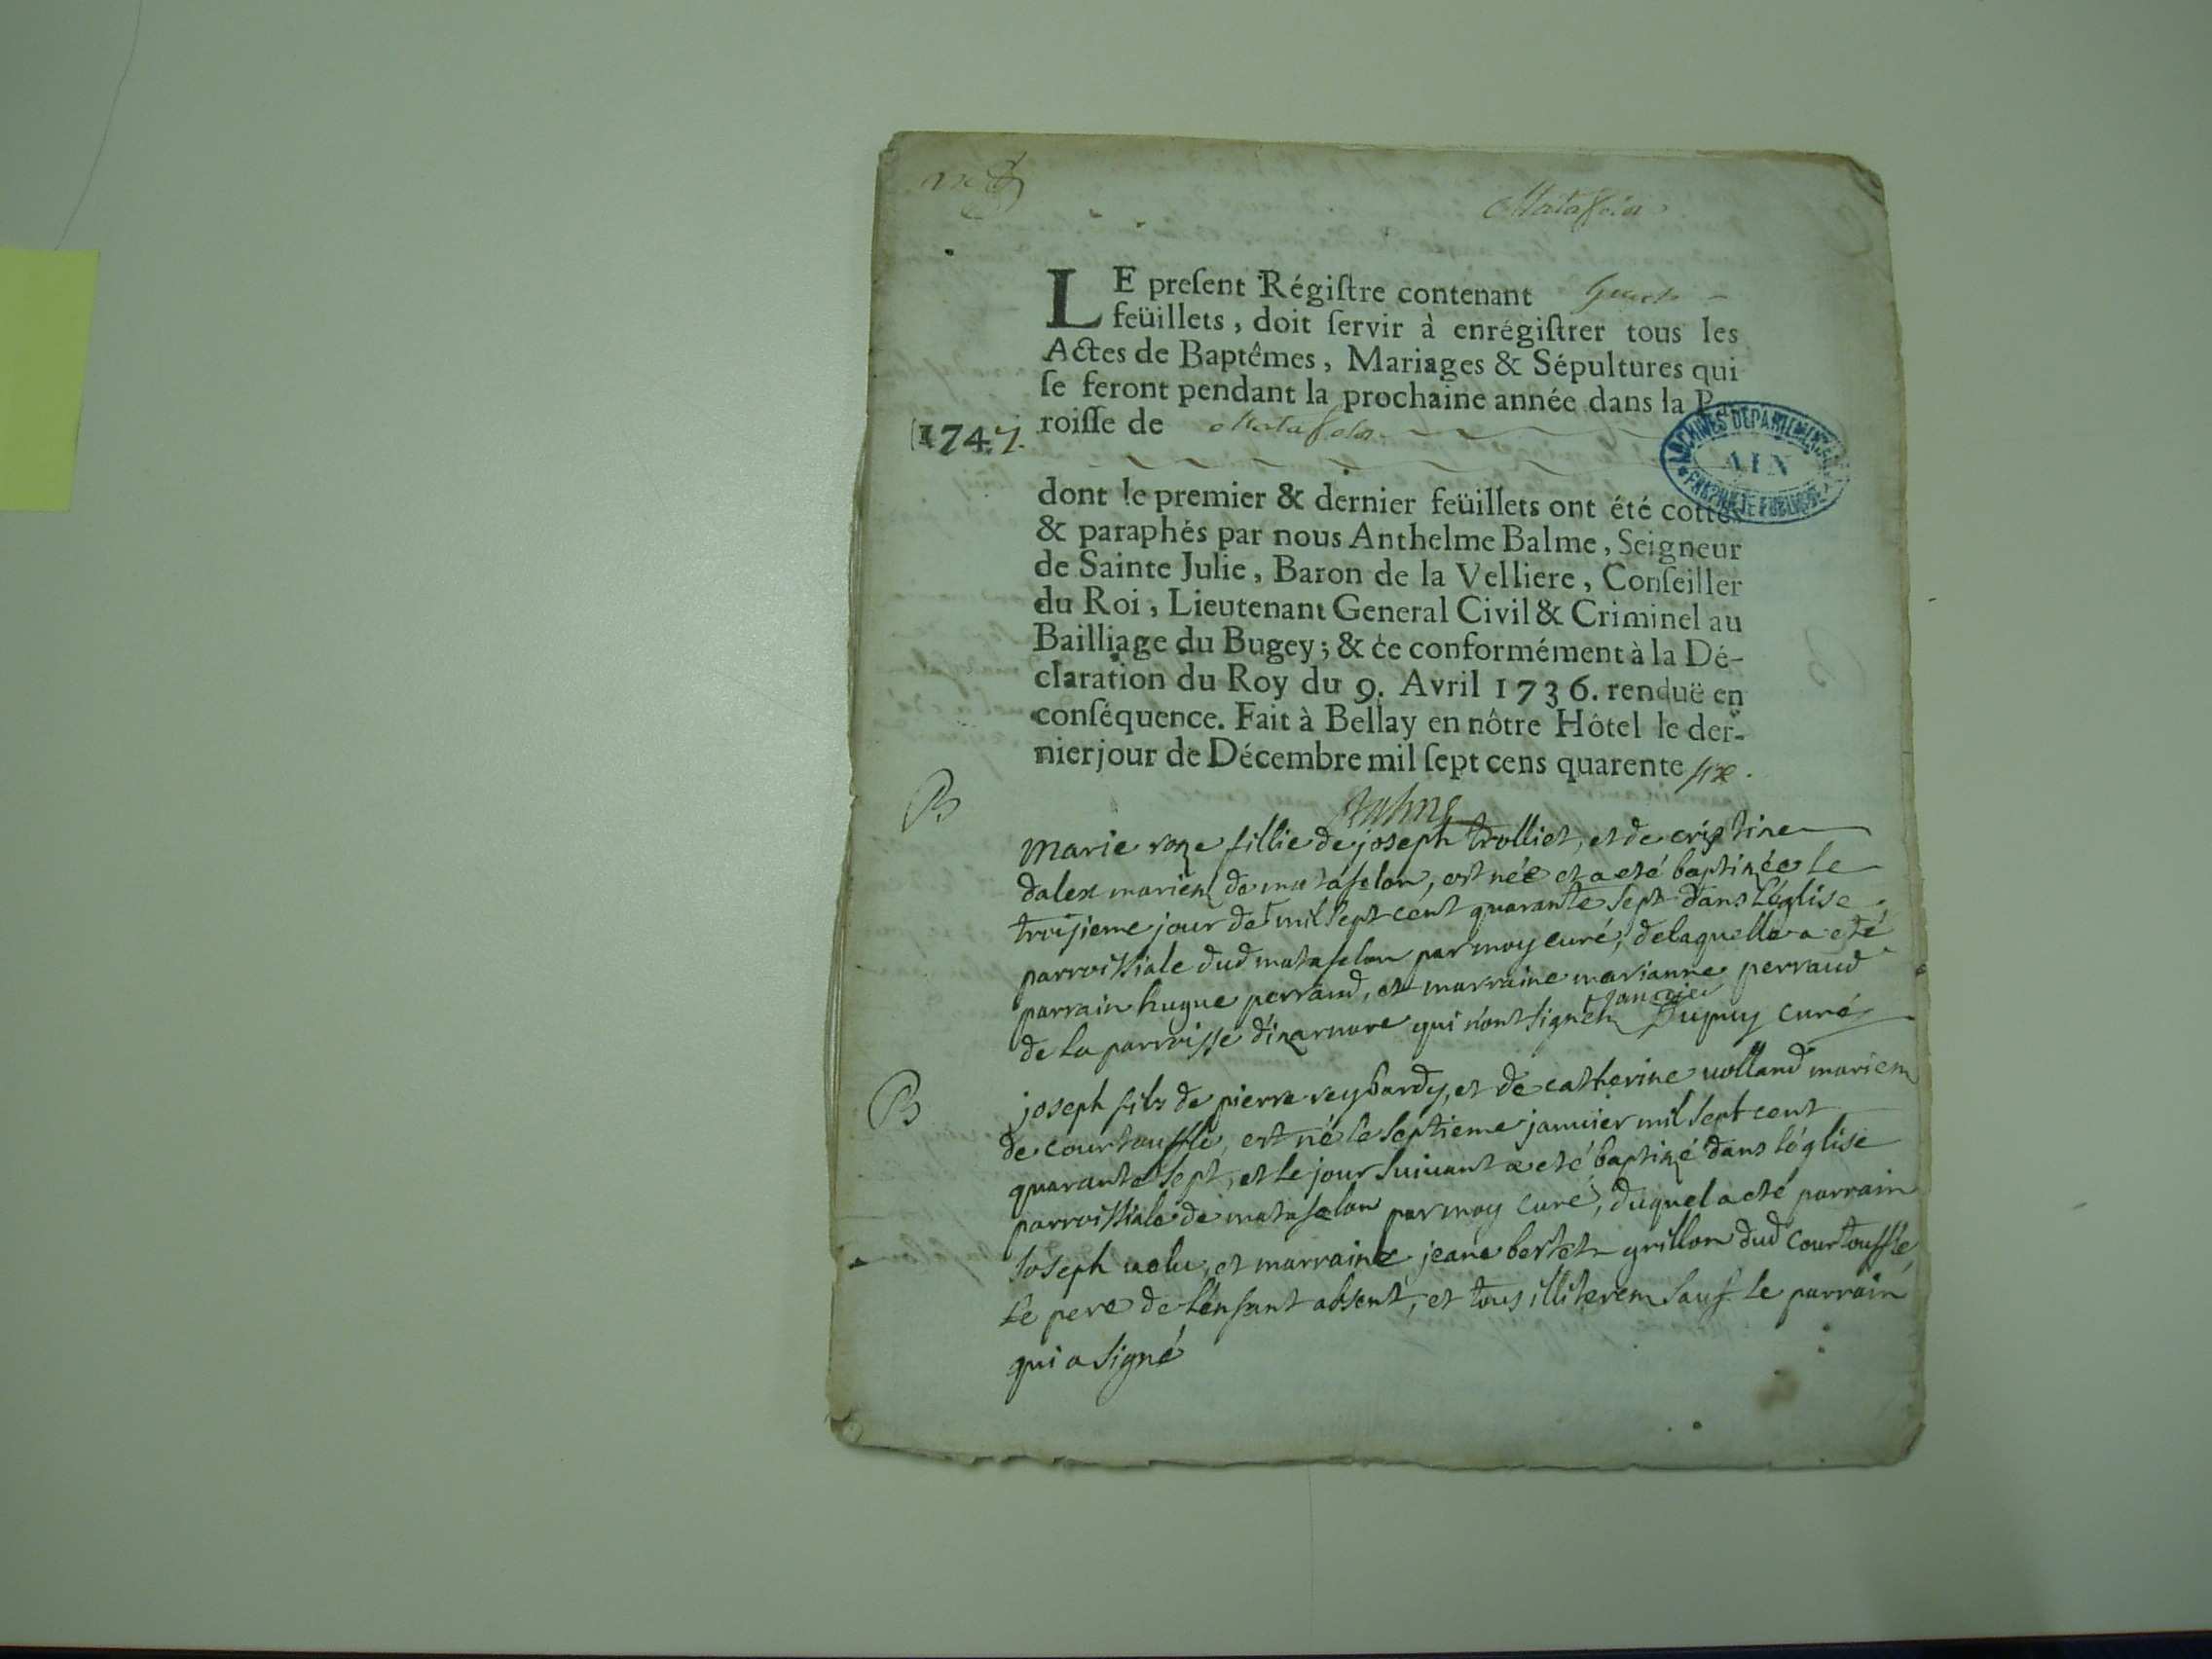 Matafelon
LE preſent Régiſtre contenant huict
feüillets, doit ſervir à enrégiſtrer tous les
Actes de Baptêmes, Mariages & Sépultures qui
ſe feront pendant la prochaine année dans la Pa-
1747. roiſſe de Matafelon
ARCHIVES DEPARTEMENTALES
AIN
PROPRIETE PUBLIQUE
dont le premier & dernier feüillets ont été cottés
& paraphés par nous Anthelme Balme, Seigneur
de Sainte Julie, Baron de la Velliere, Conſeiller
du Roi, Lieutenant General Civil & Criminel au
Bailliage du Bugey; & ce conformément à la Dé-
claration du Roy du 9. Avril 1736. renduë en
conſéquence. Fait à Bellay en nôtre Hôtel le der-
nier jour de Décembre mil ſept cens quarente six.
Balme
B
marie roze fillie de joseph trolliet, et de cristine
dalex mariez de matafelon, est née et a eté baptizée le
troisieme jour de mil sept cent quarante sept dans l'église
parroissiale dud matafelon par moy curé, de laquelle a eté
parrain hugue perraud, et marraine marianne perraud
janvier
de la parroisse d'izarnore qui n'ont signéz Dupuy curé
B
joseph fils de pierre reybardy, et de catherine volland mariez
de courtouffle, est né le septieme janvier mil sept cent
quarante sept, et le jour suivant a eté baptizé dans l'église
parroissiale de matafelon par moy curé, duquel a eté parrain
joseph velu, et marraine jeane bertet grillon dud courtouffle,
le pere de l'enfant absent, et tous illiterez sauf le parrain
qui a signé